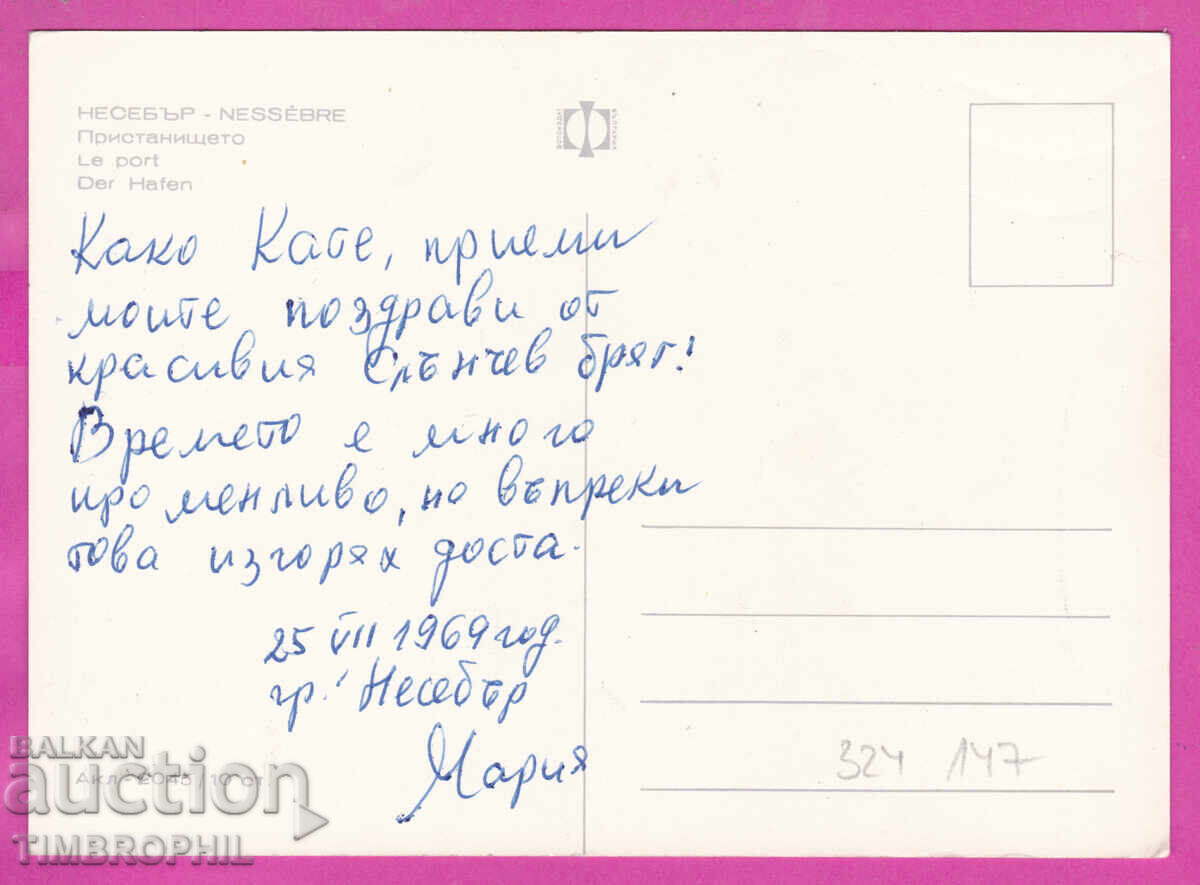 НЕСЕБЪР - NESSÈBRE
Пристанището
Le port
Der Hafen
Како Кате, приеми
моите поздрави от
красивия Слънчев бряг!
Времето е много
променливо, но въпреки
това изгорях доста.
25 VII 1969 год.
гр. Несебър
Мария
Акл. 2045 / 10 ст.
324 147
BALKAN
auction
TIMBROPHIL